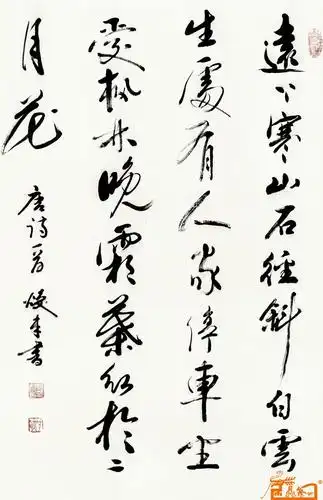 遠上寒山石徑斜白雲
生處有人家停車坐
愛楓林晚霜葉紅於二
月花
唐诗一首 書